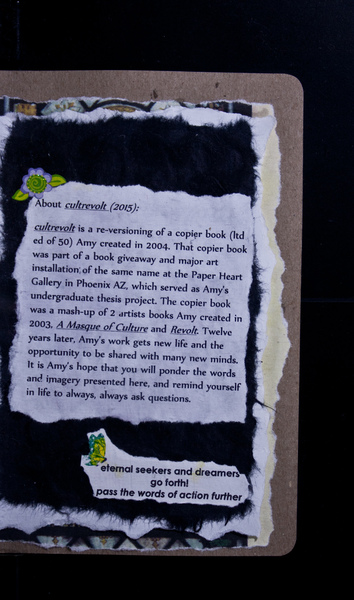 About cultrevolt (2015):
cultrevolt is a re-versioning of a copier book (ltd
ed of 50) Amy created in 2004. That copier book
was part of a book giveaway and major art
installation of the same name at the Paper Heart
Gallery in Phoenix AZ, which served as Amy's
undergraduate thesis project. The copier book
was a mash-up of 2 artists books Amy created in
2003, A Masque of Culture and Revolt. Twelve
years later, Amy's work gets new life and the
opportunity to be shared with many new minds.
It is Amy's hope that you will ponder the words
and imagery presented here, and remind yourself
in life to always, always ask questions.
eternal seekers and dreamers
go forth!
pass the words of action further